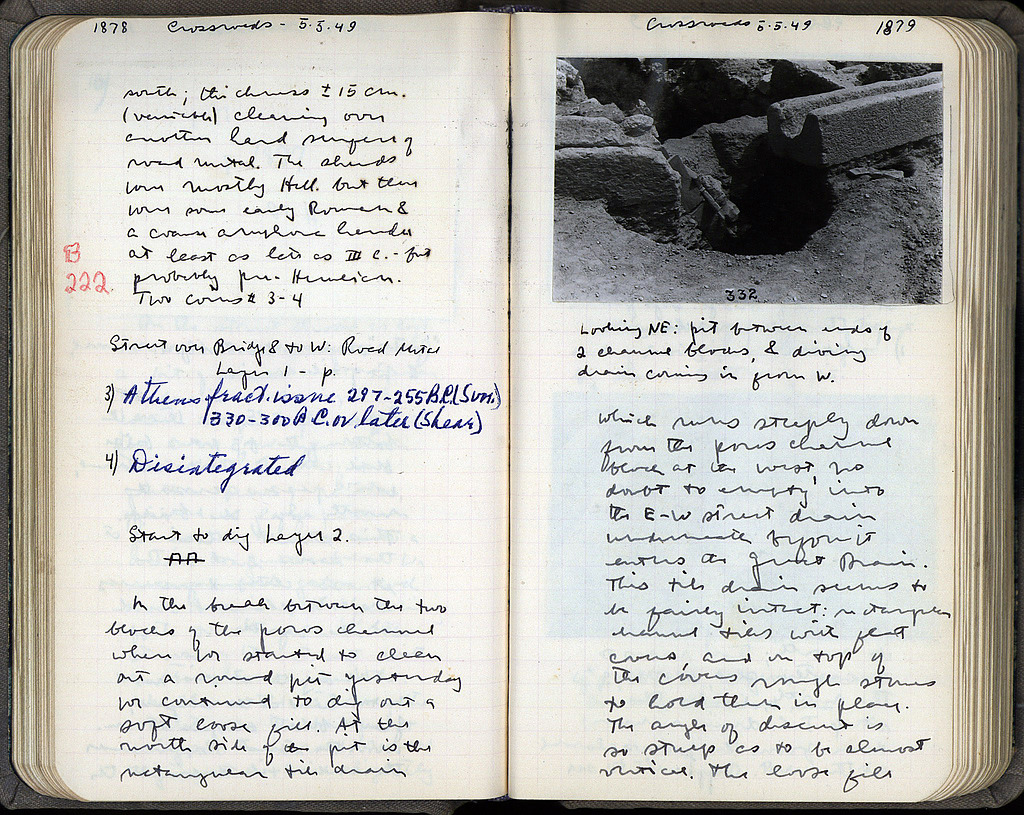 1878 Crossroads - 5.5.49
south; thickness ± 15 cm.
(variable) cleaning over
another hard surface of
road metal. The sherds
were mostly Hell. but there
were some early Roman &
a coarse amphora handle
at least as late as III c. - but
probably pre-Herulian.
Two coins # 3-4
B
222.
Street over Bridge 8 to W: Road Metal
Layer 1 - p.
3) Athens fract. issue 297-255 B.C. (Svor.)
330-300 B.C. or later (Shear)
4) Disintegrated
Start to dig Layer 2.
AA
In the break between the two
blocks of the poros channel
where we started to clean
out a round pit yesterday
we continued to dig out a
soft loose fill. At the
north side of the pit is the
rectangular tile drain
Crossroads 5.5.49 1879
332
Looking NE: pit between ends of
2 channel blocks, & diving
drain coming in from W.
which runs steeply down
from the poros channel
block at the west, no
doubt to empty into
the E-W street drain
underneath before it
enters the Great Drain.
This tile drain seems to
be fairly intact: rectangular
channel tiles with flat
covers, and on top of
the covers rough stones
to hold them in place.
The angle of descent is
so steep as to be almost
vertical. The loose fill